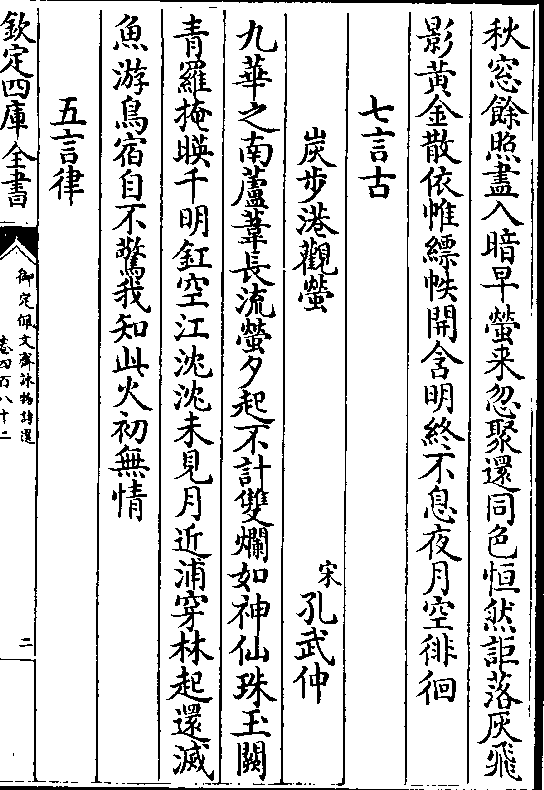 秋窓餘照盡入暗早螢来忽聚還同色恒然詎落灰飛
影黄金散依帷縹帙開含明終不息夜月空徘徊
七言古
炭步港觀螢
宋孔武仲
九華之南蘆葦長流螢夕起不計雙爛如神仙珠玉闕
青羅掩暎千明釭空江沈沈未見月近浦穿林起還滅
魚游鳥宿自不驚我知此火初無情
五言律
欽定四庫全書
御定佩文齋詠物詩選
卷四百八十二
二